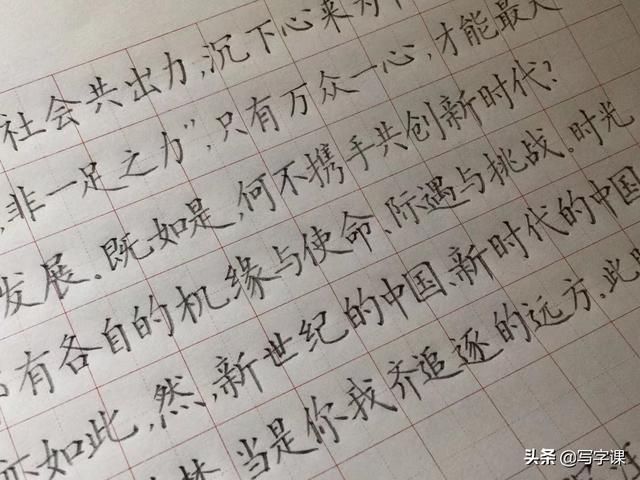 社会共出力,沉下心来为
,非一足之力",只有万众一心,才能最大
发展。既如是,何不携手共创新时代?
有各自的机缘与使命、际遇与挑战。时光
亦如此,然,新世纪的中国、新时代的中国
当是你我齐追逐的远方。此
头条 @写字课